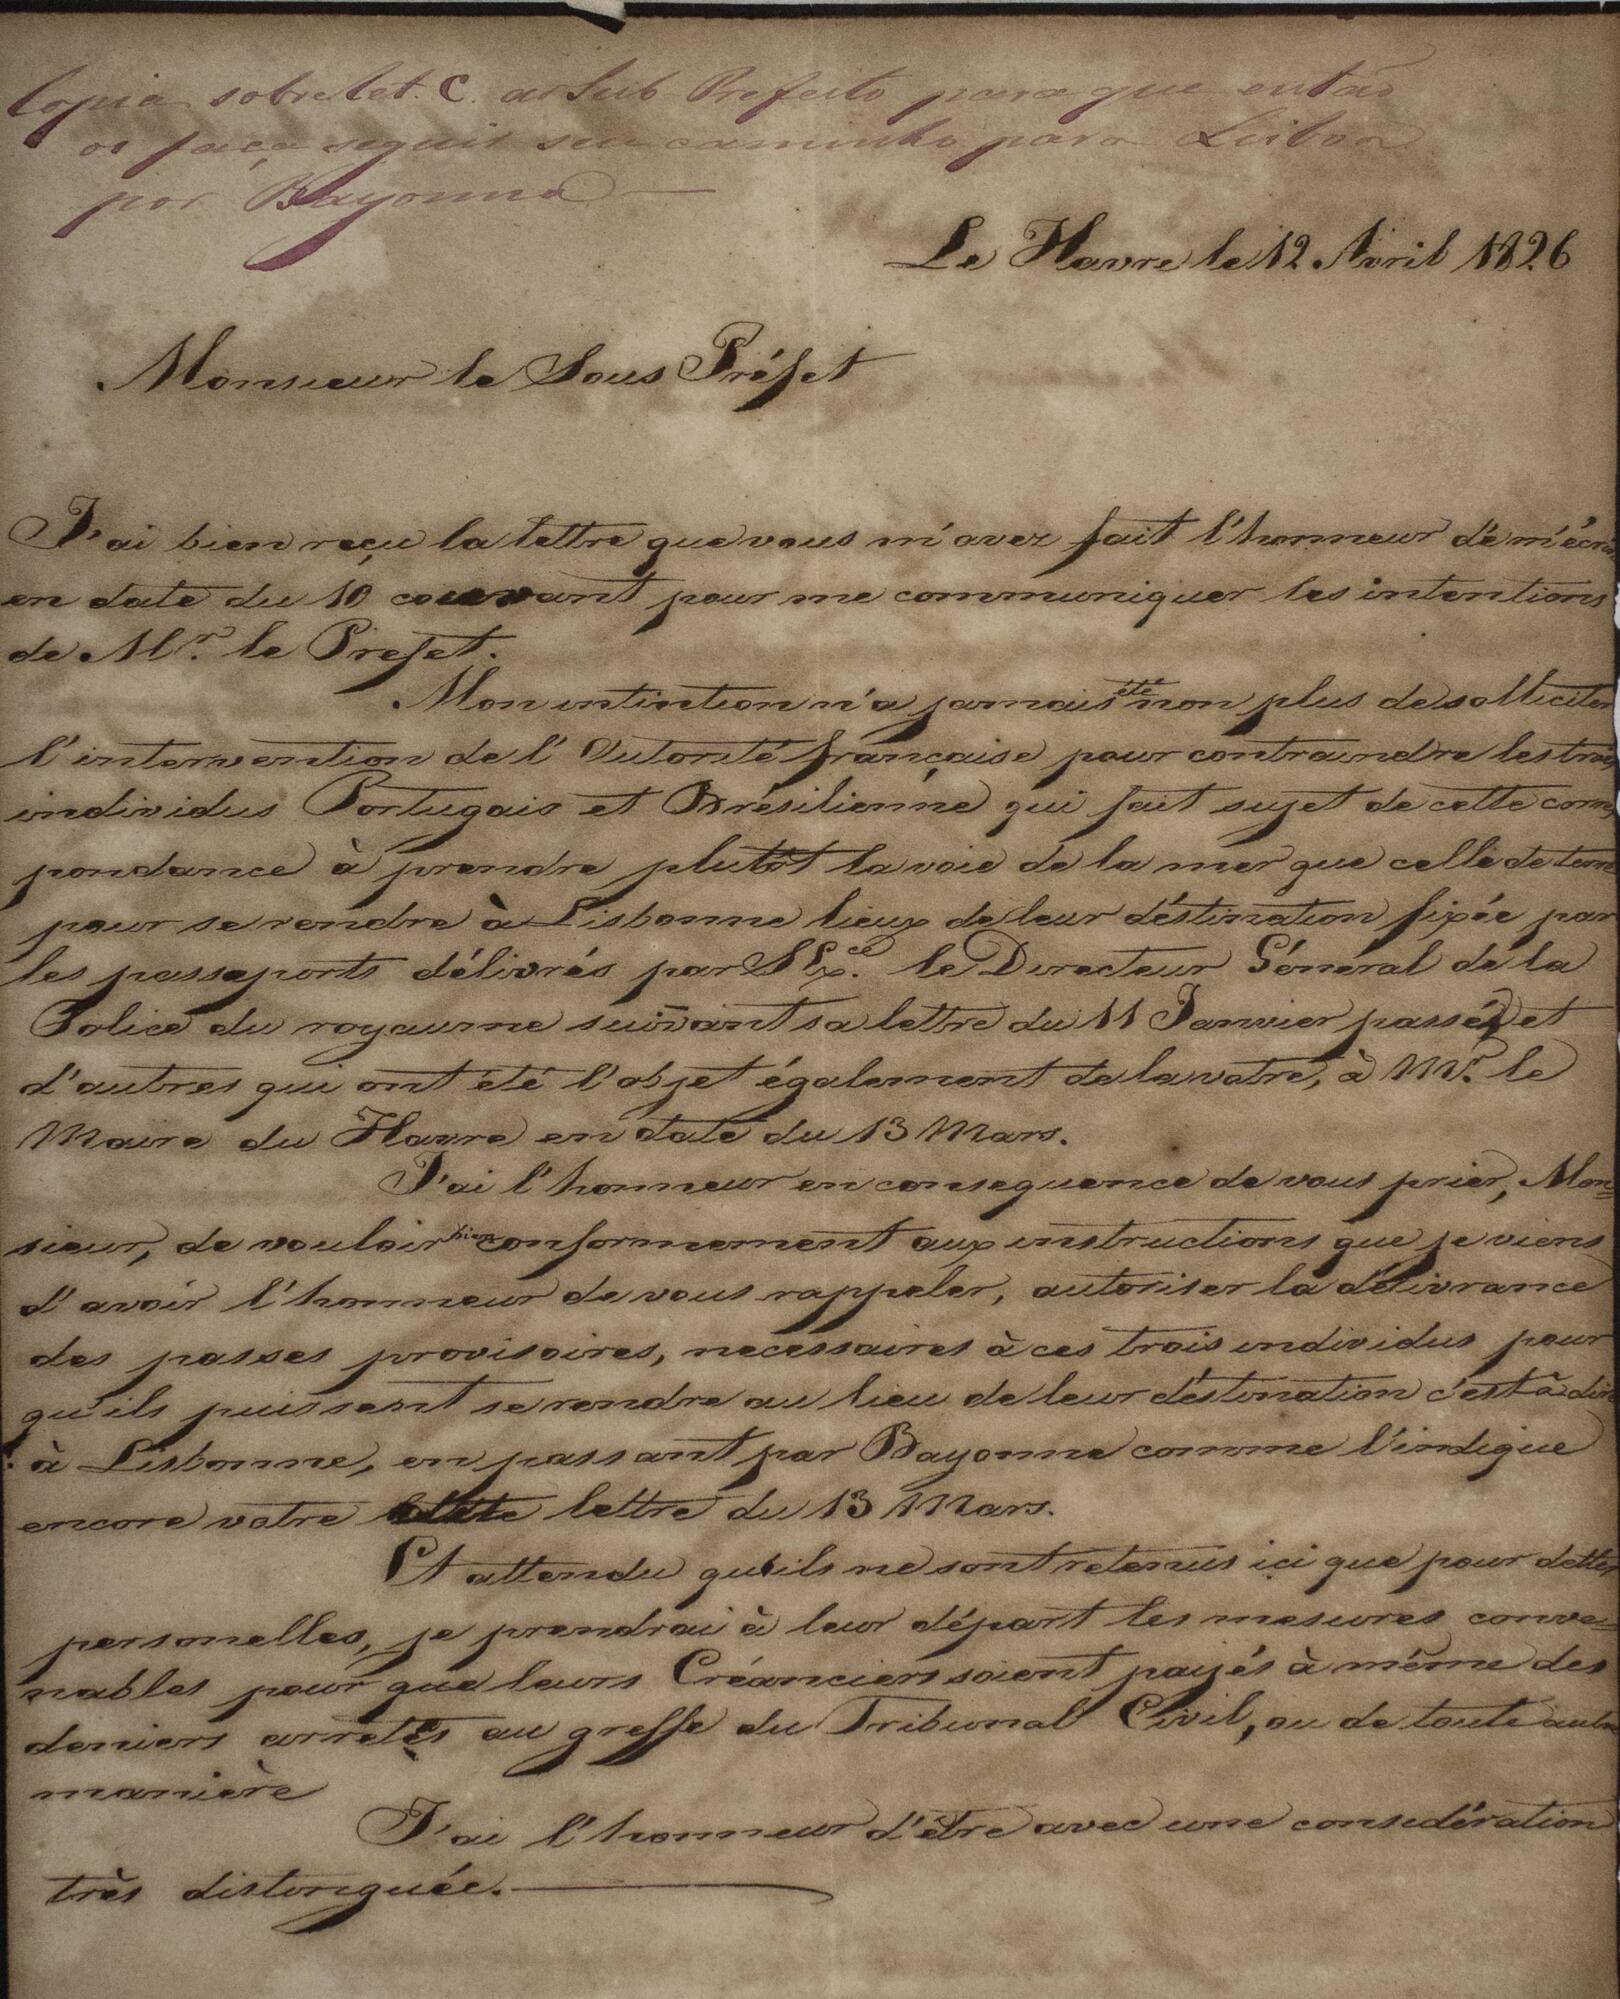 Copia sobre let. C. ao Sub Prefeito para que então
os faça seguir seu caminho para Lisboa
por Bayonna —
Le Havre le 12 Avril 1826
Monsieur le Sous Préfet
J'ai bien reçu la lettre que vous m'avez fait l'honneur de m'écri
en date du 10 courant pour me communiquer les intentions
de Mr. le Prefet.
Mon intention n'a jamais été non plus de solliciter
l'intervention de l'Autorité française pour contraindre les trois
individus Portugais et Brésilienne qui fait sujet de cette corres
pondance à prendre plutôt la voie de la mer que celle de terre
pour se rendre à Lisbonne lieux de leur déstination fixée par
les passeports délivrés par S Exce. le Directeur Général de la
Police du royaume suivant sa lettre du 11 Janvier passé, et
d'autres qui ont été l'objet également de la votre, à Mr. le
Maire du Havre en date du 13 Mars.
J'ai l'honneur en consequence de vous prier, Mon=
sieur, de vouloir bien conformement aux instructions que je viens
d'avoir l'honneur de vous rappeler, autoriser la délivrance
des passes provisoires, necessaires à ces trois individus pour
qu'ils puissent se rendre au lieu de leur déstination c'est à dire
à Lisbonne, en passant par Bayonne comme l'indique
encore votre lettre du 13 Mars.
Et attendu qu'ils ne sont retenus ici que pour dettes
personelles, je prendrai à leur départ les mesures conve=
nables pour que leurs Créanciers soient payés à même des
deniers arretés au greffe du Tribunal Civil, ou de toute autre
manière
J'ai l'honneur d'être avec une considération
très distinguée.